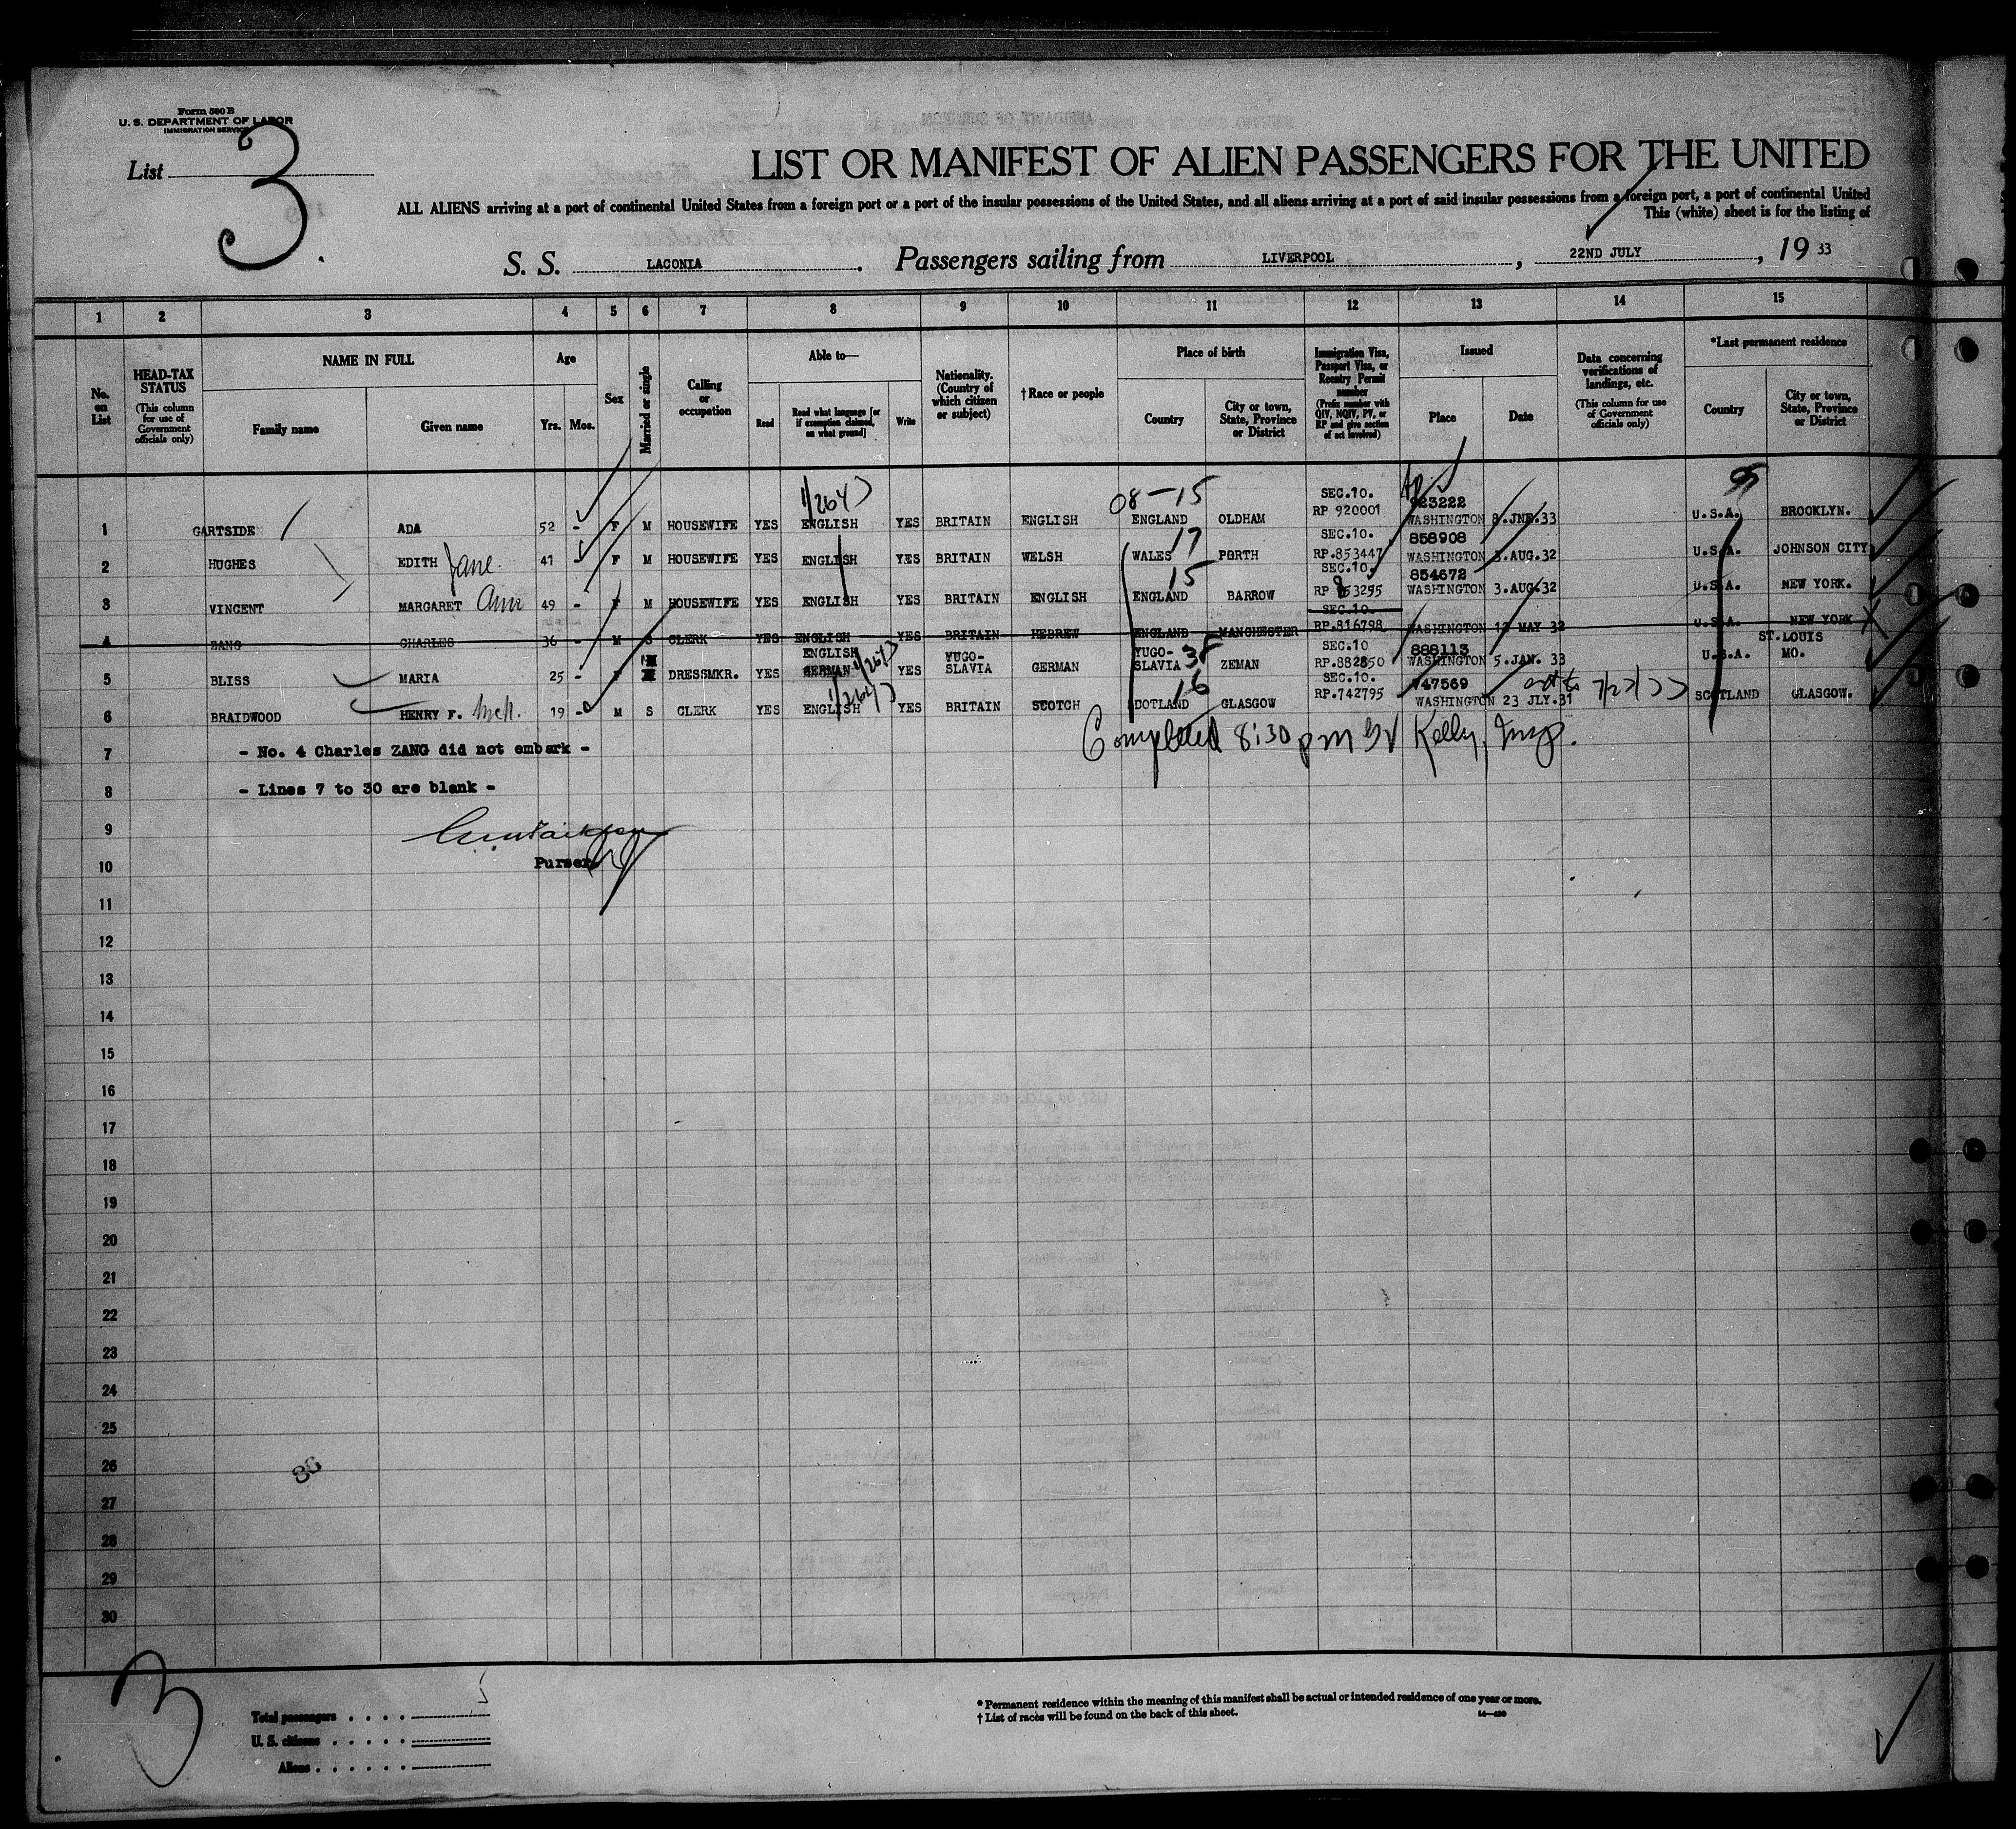 Form 500 B
U. S. DEPARTMENT OF LABOR
IMMIGRATION SERVICE
List 3
LIST OR MANIFEST OF ALIEN PASSENGERS FOR THE UNITED
ALL ALIENS arriving at a port of continental United States from a foreign port or a port of the insular possessions of the United States, and all aliens arriving at a port of said insular possessions from a foreign port, a port of continental United
This (white) sheet is for the listing of
S. S. LACONIA. Passengers sailing from LIVERPOOL, 22ND JULY, 19 33
1 2 3 4 5 6 7 8 9 10 11 12 13 14 15
No. on List
HEAD-TAX STATUS
(This column for use of Government officials only)
NAME IN FULL
Family name
Given name
Age
Yrs. Mos.
Sex
Married or single
Calling or occupation
Able to—
Read
Read what language [or if exemption claimed, on what ground]
Write
Nationality. (Country of which citizen or subject)
† Race or people
Place of birth
Country
City or town, State, Province or District
Immigration Visa, Passport Visa, or Reentry Permit number
(Prefix number with QIV, NQIV, PV, or RP and give section of act involved)
Issued
Place
Date
Data concerning verifications of landings, etc.
(This column for use of Government officials only)
*Last permanent residence
Country
City or town, State, Province or District
1/2647 08-15 SEC.10. 923222
1 GARTSIDE ADA 52 - F M HOUSEWIFE YES ENGLISH YES BRITAIN ENGLISH ENGLAND OLDHAM RP 920001 WASHINGTON 8.JNE.33 U.S.A. BROOKLYN.
17 SEC.10. 858908
2 HUGHES EDITH Jane. 41 - F M HOUSEWIFE YES ENGLISH YES BRITAIN WELSH WALES PORTH RP.853447 WASHINGTON 3.AUG.32 U.S.A. JOHNSON CITY
15 SEC.10. 854672
3 VINCENT MARGARET Ann 49 - F M HOUSEWIFE YES ENGLISH YES BRITAIN ENGLISH ENGLAND BARROW RP 853295 WASHINGTON 3.AUG.32 U.S.A. NEW YORK.
SEC.10.
4 ZANG CHARLES 36 - M S CLERK YES ENGLISH YES BRITAIN HEBREW ENGLAND MANCHESTER RP.816798 WASHINGTON 12 MAY 32 U.S.A. NEW YORK
ENGLISH 1/2647 YUGO- YUGO- 38 SEC.10 888113 ST.LOUIS
5 BLISS MARIA 25 - F DRESSMKR. YES GERMAN YES SLAVIA GERMAN SLAVIA ZEMAN RP.882850 WASHINGTON 5.JAN. 33 U.S.A. MO.
1/2647 16 SEC.10. 747569
6 BRAIDWOOD HENRY F. 19 - M S CLERK YES ENGLISH YES BRITAIN SCOTCH SCOTLAND GLASGOW RP.742795 WASHINGTON 23 JLY.31 7/23/33 SCOTLAND GLASGOW.
7 - No. 4 Charles ZANG did not embark -
Completed 8:30 pm Kelly, Insp.
8 - Lines 7 to 30 are blank -
9
10 Purser
11
12
13
14
15
16
17
18
19
20
21
22
23
24
25
26 86
27
28
29
30
3
Total passengers . . . . 5
U. S. citizens . . . . .
Aliens . . . . . .
* Permanent residence within the meaning of this manifest shall be actual or intended residence of one year or more.
† List of races will be found on the back of this sheet.
14—480